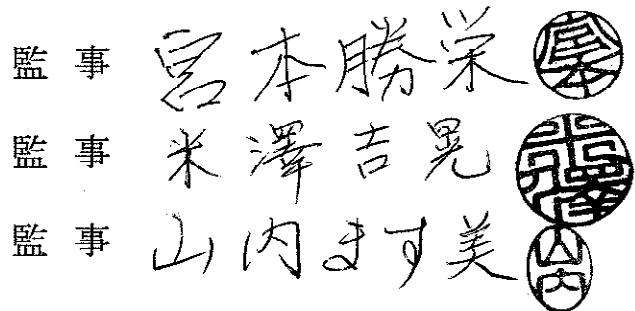 監事 宮本勝栄 宮本
監事 米澤吉晃 米澤
監事 山内ます美 山内